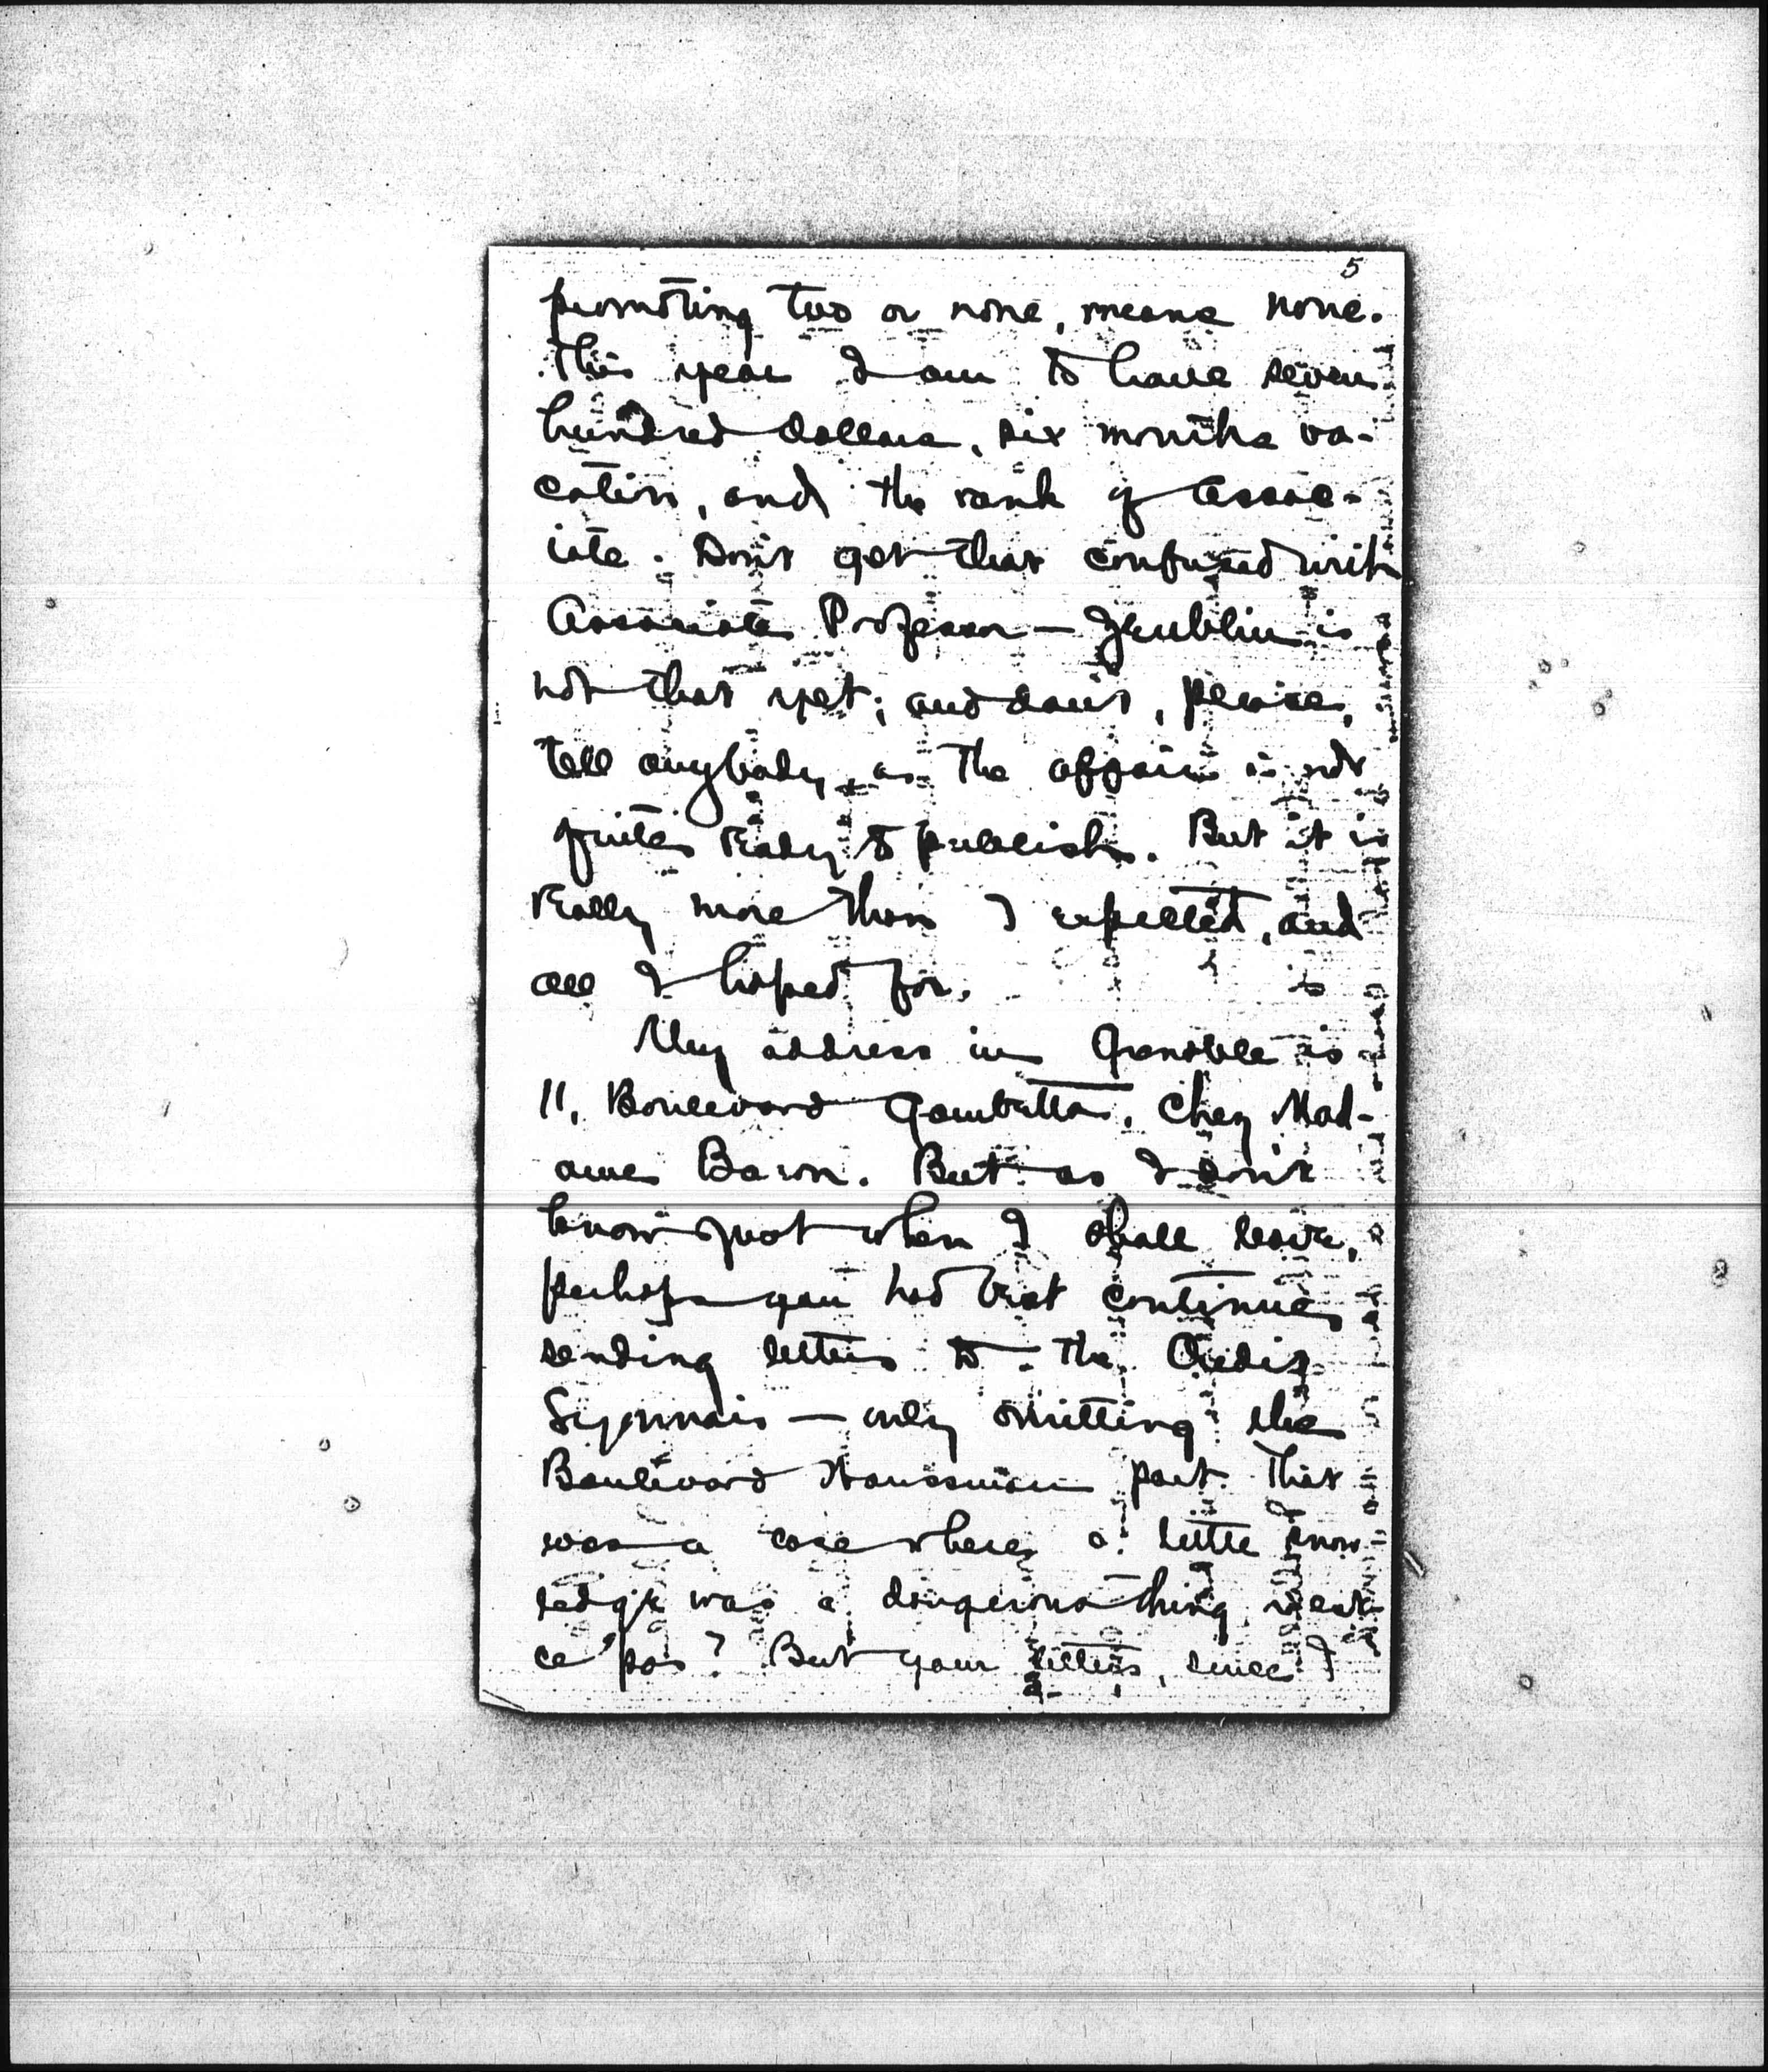 5
promoting two or none, means none.
This year I am to have seven
hundred dollars, six months va-
cation, and the rank of Assoc-
iate. Don't get that confused with
Associate Professor — Zeublin is
not that yet; and don't, please,
tell anybody, as the affair is not
quite ready to publish. But it is
really more than I expected, and
all I hoped for.
My address in Grenoble is
11, Boulevard Gambetta, Chez Mad-
ame Baron. But as I don't
know just when I shall leave,
perhaps you had best continue
sending letters to the Credit
Lyonnais — only omitting the
Boulevard Haussman part. That
was a case where a little know
ledge was a dangerous thing, n'est
ce pas? But your letters, since I